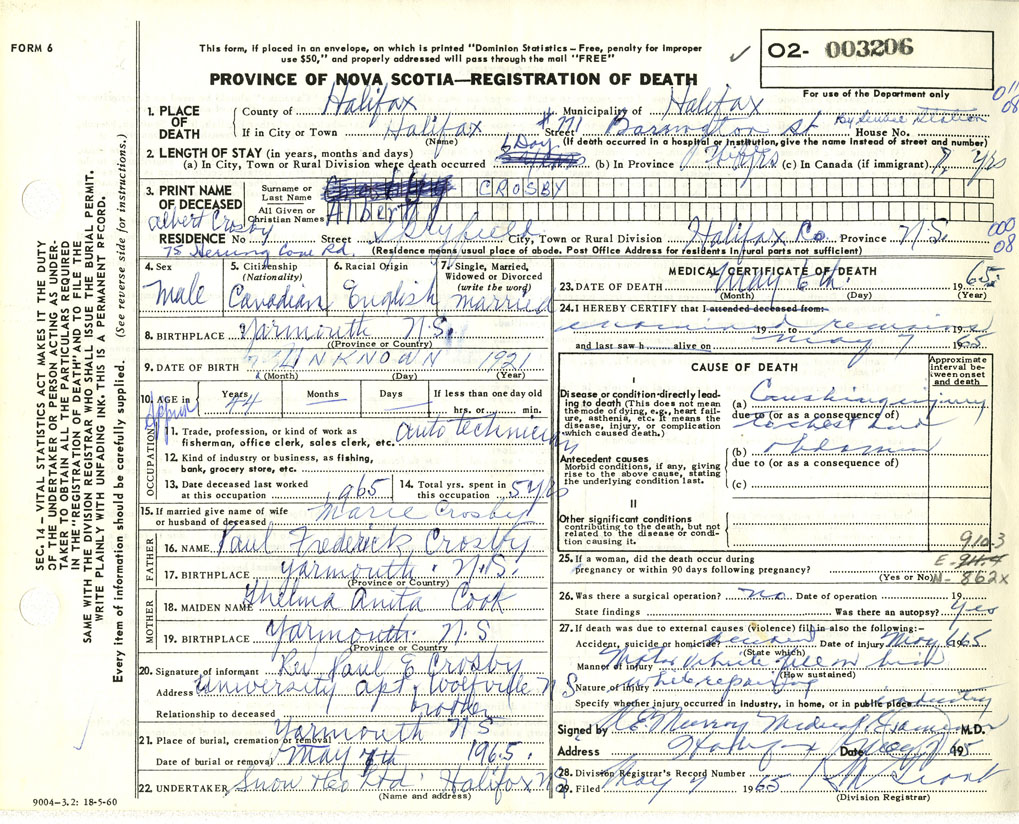 FORM 6
This form, if placed in an envelope, on which is printed "Dominion Statistics – Free, penalty for improper
use $50," and properly addressed will pass through the mail "FREE"
PROVINCE OF NOVA SCOTIA—REGISTRATION OF DEATH
✓ 02- 003206
For use of the Department only
SEC. 14 – VITAL STATISTICS ACT MAKES IT THE DUTY
OF THE UNDERTAKER OR PERSON ACTING AS UNDER-
TAKER TO OBTAIN ALL THE PARTICULARS REQUIRED
IN THE "REGISTRATION OF DEATH" AND TO FILE THE
SAME WITH THE DIVISION REGISTRAR WHO SHALL ISSUE THE BURIAL PERMIT.
WRITE PLAINLY WITH UNFADING INK. THIS IS A PERMANENT RECORD.
Every item of information should be carefully supplied. (See reverse side for instructions.)
1. PLACE OF DEATH County of Halifax Municipality of Halifax
If in City or Town Halifax Street #771 Barrington St House No.
(Name) (If death occurred in a hospital or institution, give the name instead of street and number)
2. LENGTH OF STAY (in years, months and days)
(a) In City, Town or Rural Division where death occurred 6 Day (b) In Province (c) In Canada (if immigrant) yrs
3. PRINT NAME OF DECEASED Surname or Last Name CROSBY
All Given or Christian Names Albert
Albert Crosby
RESIDENCE No Street City, Town or Rural Division Halifax Co. Province N.S.
75 Herring Cove Rd. (Residence means usual place of abode. Post Office Address for residents in rural parts not sufficient)
000
08
4. Sex Male
5. Citizenship (Nationality) Canadian
6. Racial Origin English
7. Single, Married, Widowed or Divorced (write the word) married
8. BIRTHPLACE Yarmouth N.S.
(Province or Country)
9. DATE OF BIRTH UNKNOWN 1921
(Month) (Day) (Year)
10. AGE in Years 44 Months Days If less than one day old
hrs. or min.
OCCUPATION
11. Trade, profession, or kind of work as
fisherman, office clerk, sales clerk, etc. auto technician
12. Kind of industry or business, as fishing,
bank, grocery store, etc.
13. Date deceased last worked
at this occupation 1965
14. Total yrs. spent in
this occupation 5 yrs
15. If married give name of wife
or husband of deceased Marie Crosby
FATHER
16. NAME Paul Frederick Crosby
17. BIRTHPLACE Yarmouth. N.S.
(Province or Country)
MOTHER
18. MAIDEN NAME Thelma Anita Cook
19. BIRTHPLACE Yarmouth. N.S
(Province or Country)
20. Signature of informant Rev Paul E Crosby
Address University apt, Wolfville N S
Relationship to deceased brother
21. Place of burial, cremation or removal Yarmouth N S
Date of burial or removal May 7th 1965.
22. UNDERTAKER Snow & Co Ltd. Halifax N.S
(Name and address)
9004–3.2: 18-5-60
MEDICAL CERTIFICATE OF DEATH
23. DATE OF DEATH May 6th 1965
(Month) (Day) (Year)
24. I HEREBY CERTIFY that I attended deceased from:
examined remains 19 to 19
and last saw h alive on May 7 1965
CAUSE OF DEATH
Approximate interval between onset and death
I
Disease or condition directly lead-
ing to death (This does not mean
the mode of dying, e.g., heart fail-
ure, asthenia, etc. It means the
disease, injury, or complication
which caused death.)
(a) Crushing injury
due to (or as a consequence of)
to chest and
(b) abdomen
due to (or as a consequence of)
(c)
Antecedent causes
Morbid conditions, if any, giving
rise to the above cause, stating
the underlying condition last.
II
Other significant conditions
contributing to the death, but not
related to the disease or condi-
tion causing it.
910.3
25. If a woman, did the death occur during
pregnancy or within 90 days following pregnancy?
(Yes or No) N- 862x
26. Was there a surgical operation? no Date of operation 19
State findings Was there an autopsy? Yes
27. If death was due to external causes (violence) fill in also the following:–
Accident, suicide or homicide? accident Date of injury May 6 65
(State which)
Manner of injury Motor vehicle fell on him
(How sustained)
Nature of injury while repairing
Specify whether injury occurred in industry, in home, or in public place industry
Signed by Medical Examiner M.D.
Address Halifax Date May 7 1965
28. Division Registrar's Record Number
29. Filed May 7 1965
(Division Registrar)